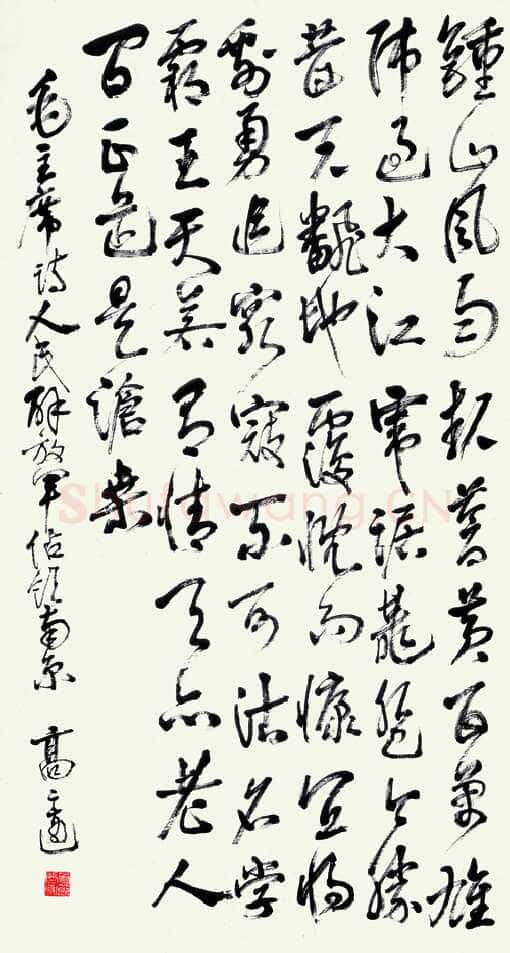 鍾山風雨起蒼黃百萬雄
師過大江虎踞龍盤今勝
昔天翻地覆慨而慷宜將
剩勇追窮寇不可沽名学
霸王天若有情天亦老人
間正道是滄桑
毛主席詩人民解放軍佔領南京 高
Shufawang.CN